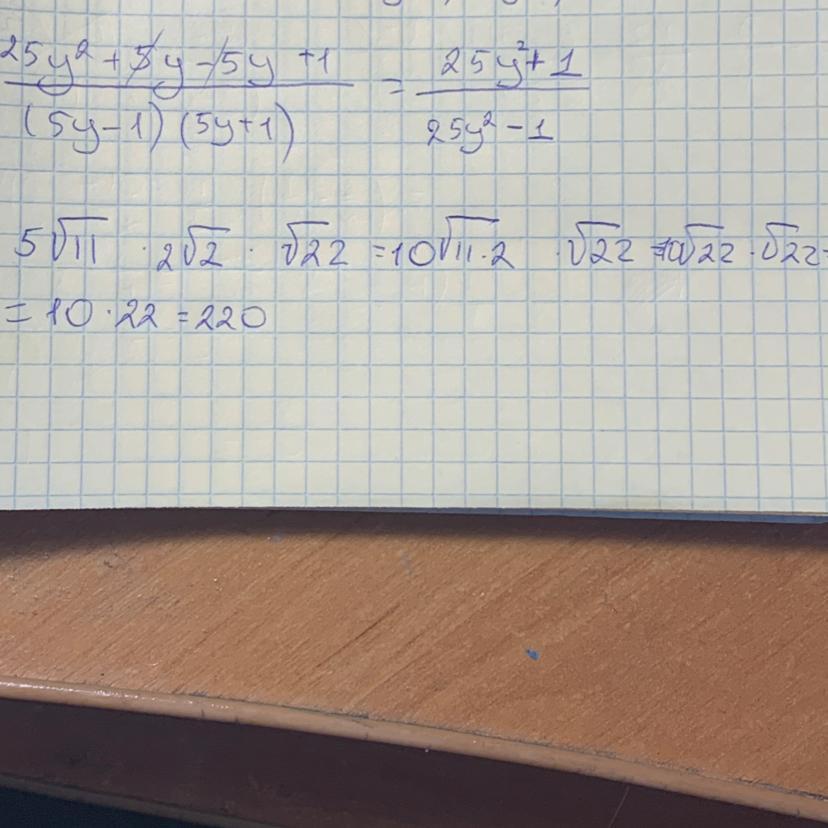 25y² + 5y - 5y + 1 = 25y² + 1
(5y-1) (5y+1) 25y² - 1
5√11 · 2√2 · √22 = 10√11·2 · √22 = 10√22 · √22 =
= 10 · 22 = 220